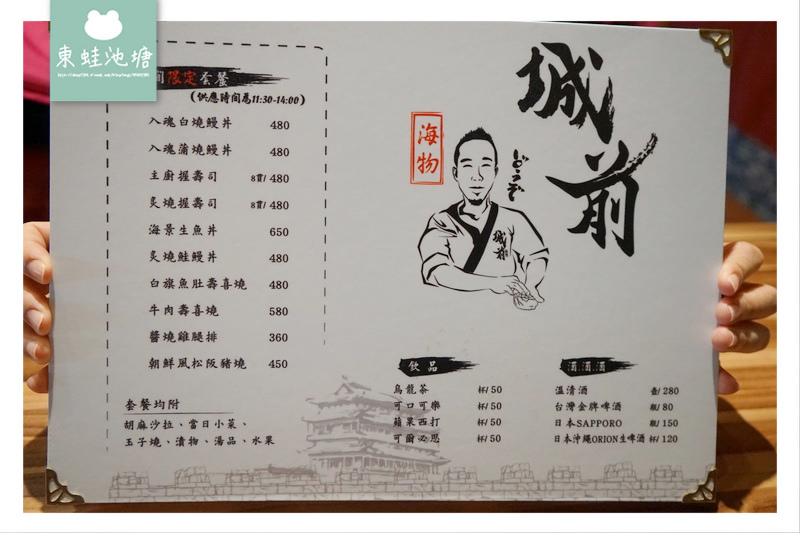 東蛙池塘
間限定套餐
(供應時間為11:30-14:00)
入魂白燒鰻丼 480
入魂蒲燒鰻丼 480
主廚握壽司 8貫/ 480
炙燒握壽司 8貫/ 480
海景生魚丼 650
炙燒鮭鰻丼 480
白旗魚肚壽喜燒 480
牛肉壽喜燒 580
醬燒雞腿排 360
朝鮮風松阪豬燒 450
套餐均附
胡麻沙拉、當日小菜、
玉子燒、漬物、湯品、水果
城前
海物
どうぞ
城前
飲品
烏龍茶 杯/ 50
可口可樂 杯/ 50
蘋果西打 杯/ 50
可爾必思 杯/ 50
酒.酒.酒
溫清酒 壺/ 280
台灣金牌啤酒 瓶/ 80
日本SAPPORO 瓶/ 150
日本沖繩ORION生啤酒 杯/ 120